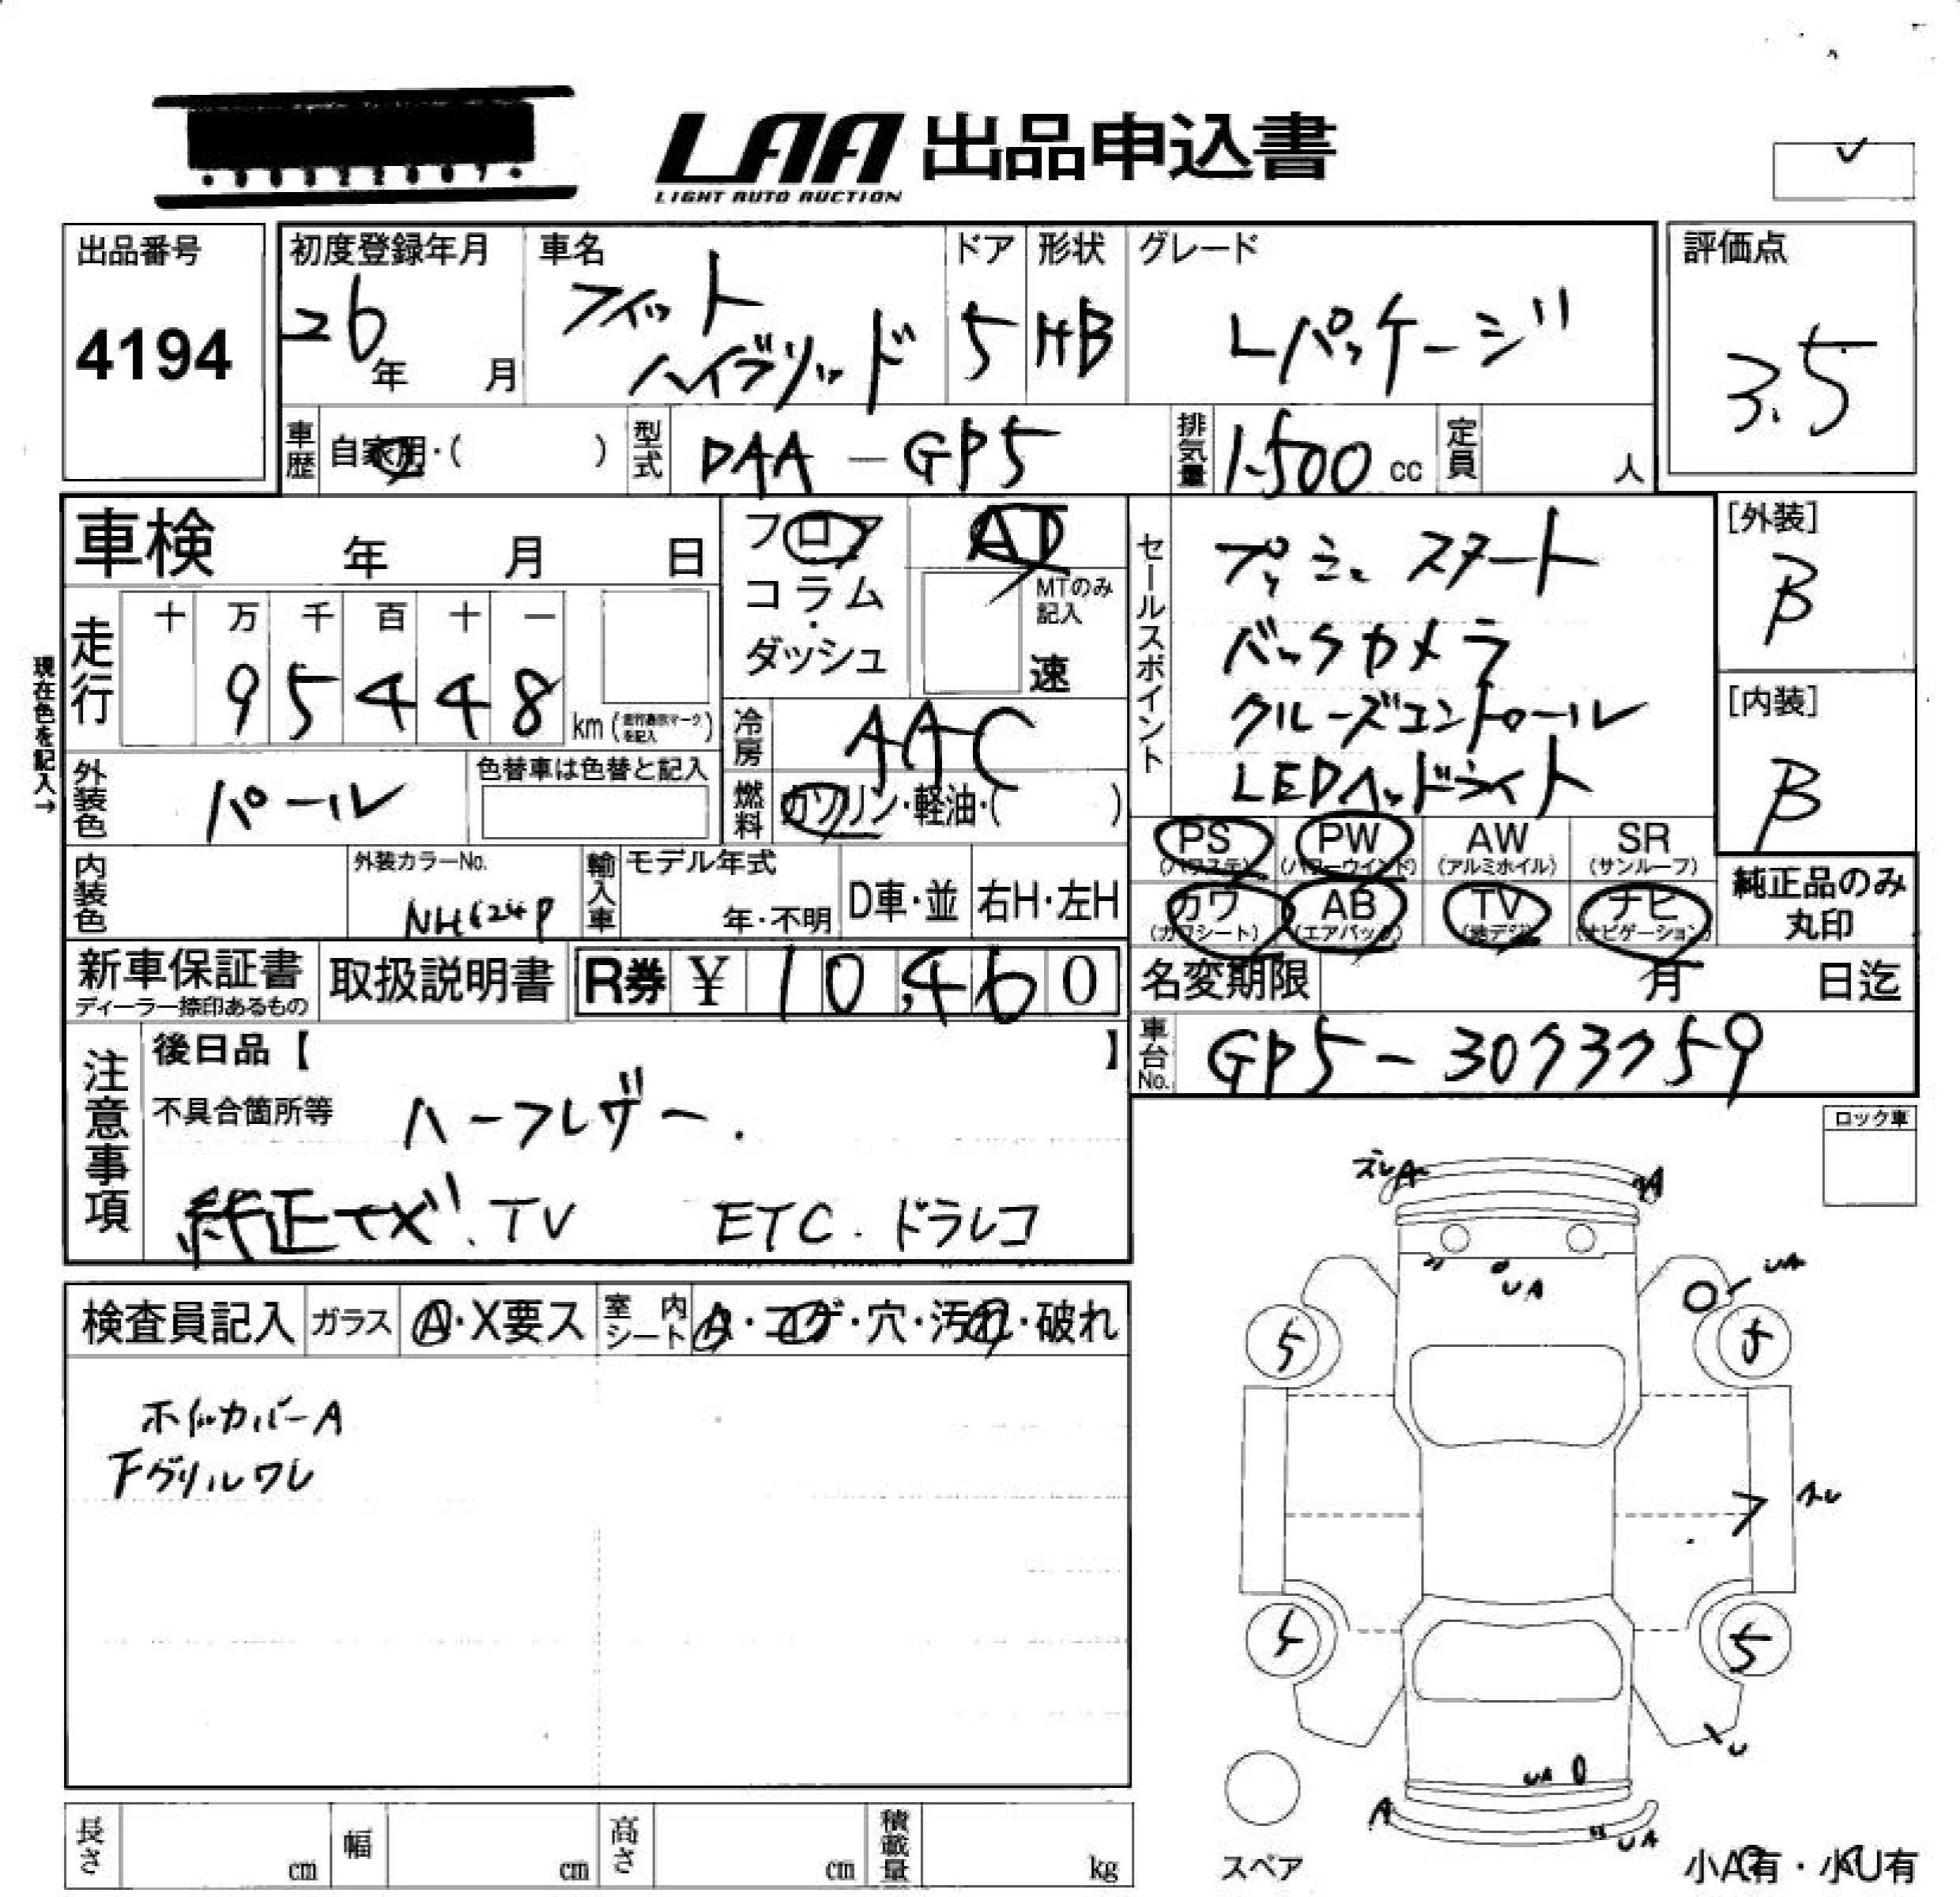 LAA 出品申込書
LIGHT AUTO AUCTION
出品番号
4194
初度登録年月
26年 月
車名
フィット
ハイブリッド
ドア
5
形状
HB
グレード
Lパッケージ
評価点
3.5
車歴
自家用・( )
型式
DAA-GP5
排気量
1.500 cc
定員
人
車検 年 月 日
フロア
コラム
・
ダッシュ
AT
MTのみ
記入
速
セールスポイント
プッシュスタート
バックカメラ
クルーズコントロール
LEDヘッドライト
[外装]
B
[内装]
B
現在色を記入→
走行
十 万 千 百 十 一
9 5 4 4 8
km (走行表示マークを記入)
冷房
AAC
燃料
ガソリン・軽油・( )
外装色
パール
色替車は色替と記入
PS
(パワステ)
PW
(パワーウインド)
AW
(アルミホイル)
SR
(サンルーフ)
カワ
(カワシート)
AB
(エアバック)
TV
(地デジ)
ナビ
(ナビゲーション)
純正品のみ
丸印
内装色
外装カラーNo.
NH624P
輸入車
モデル年式
年・不明
D車・並
右H・左H
新車保証書
ディーラー捺印あるもの
取扱説明書
R券 ¥ 10,460
名変期限 月 日迄
車台No.
GP5-3073759
注意事項
後日品【 】
不具合箇所等
ハーフレザー.
純正ナビ.TV ETC.ドラレコ
ロック車
検査員記入
ガラス
A・X要ス
室内シート
A・コゲ・穴・汚れ・破れ
ホイルカバーA
下グリルワレ
ズレA
A
UA
UA
5
5
5
5
U
UA
A
UA
スペア
小A有・小U有
長さ
cm
幅
cm
高さ
cm
積載量
kg